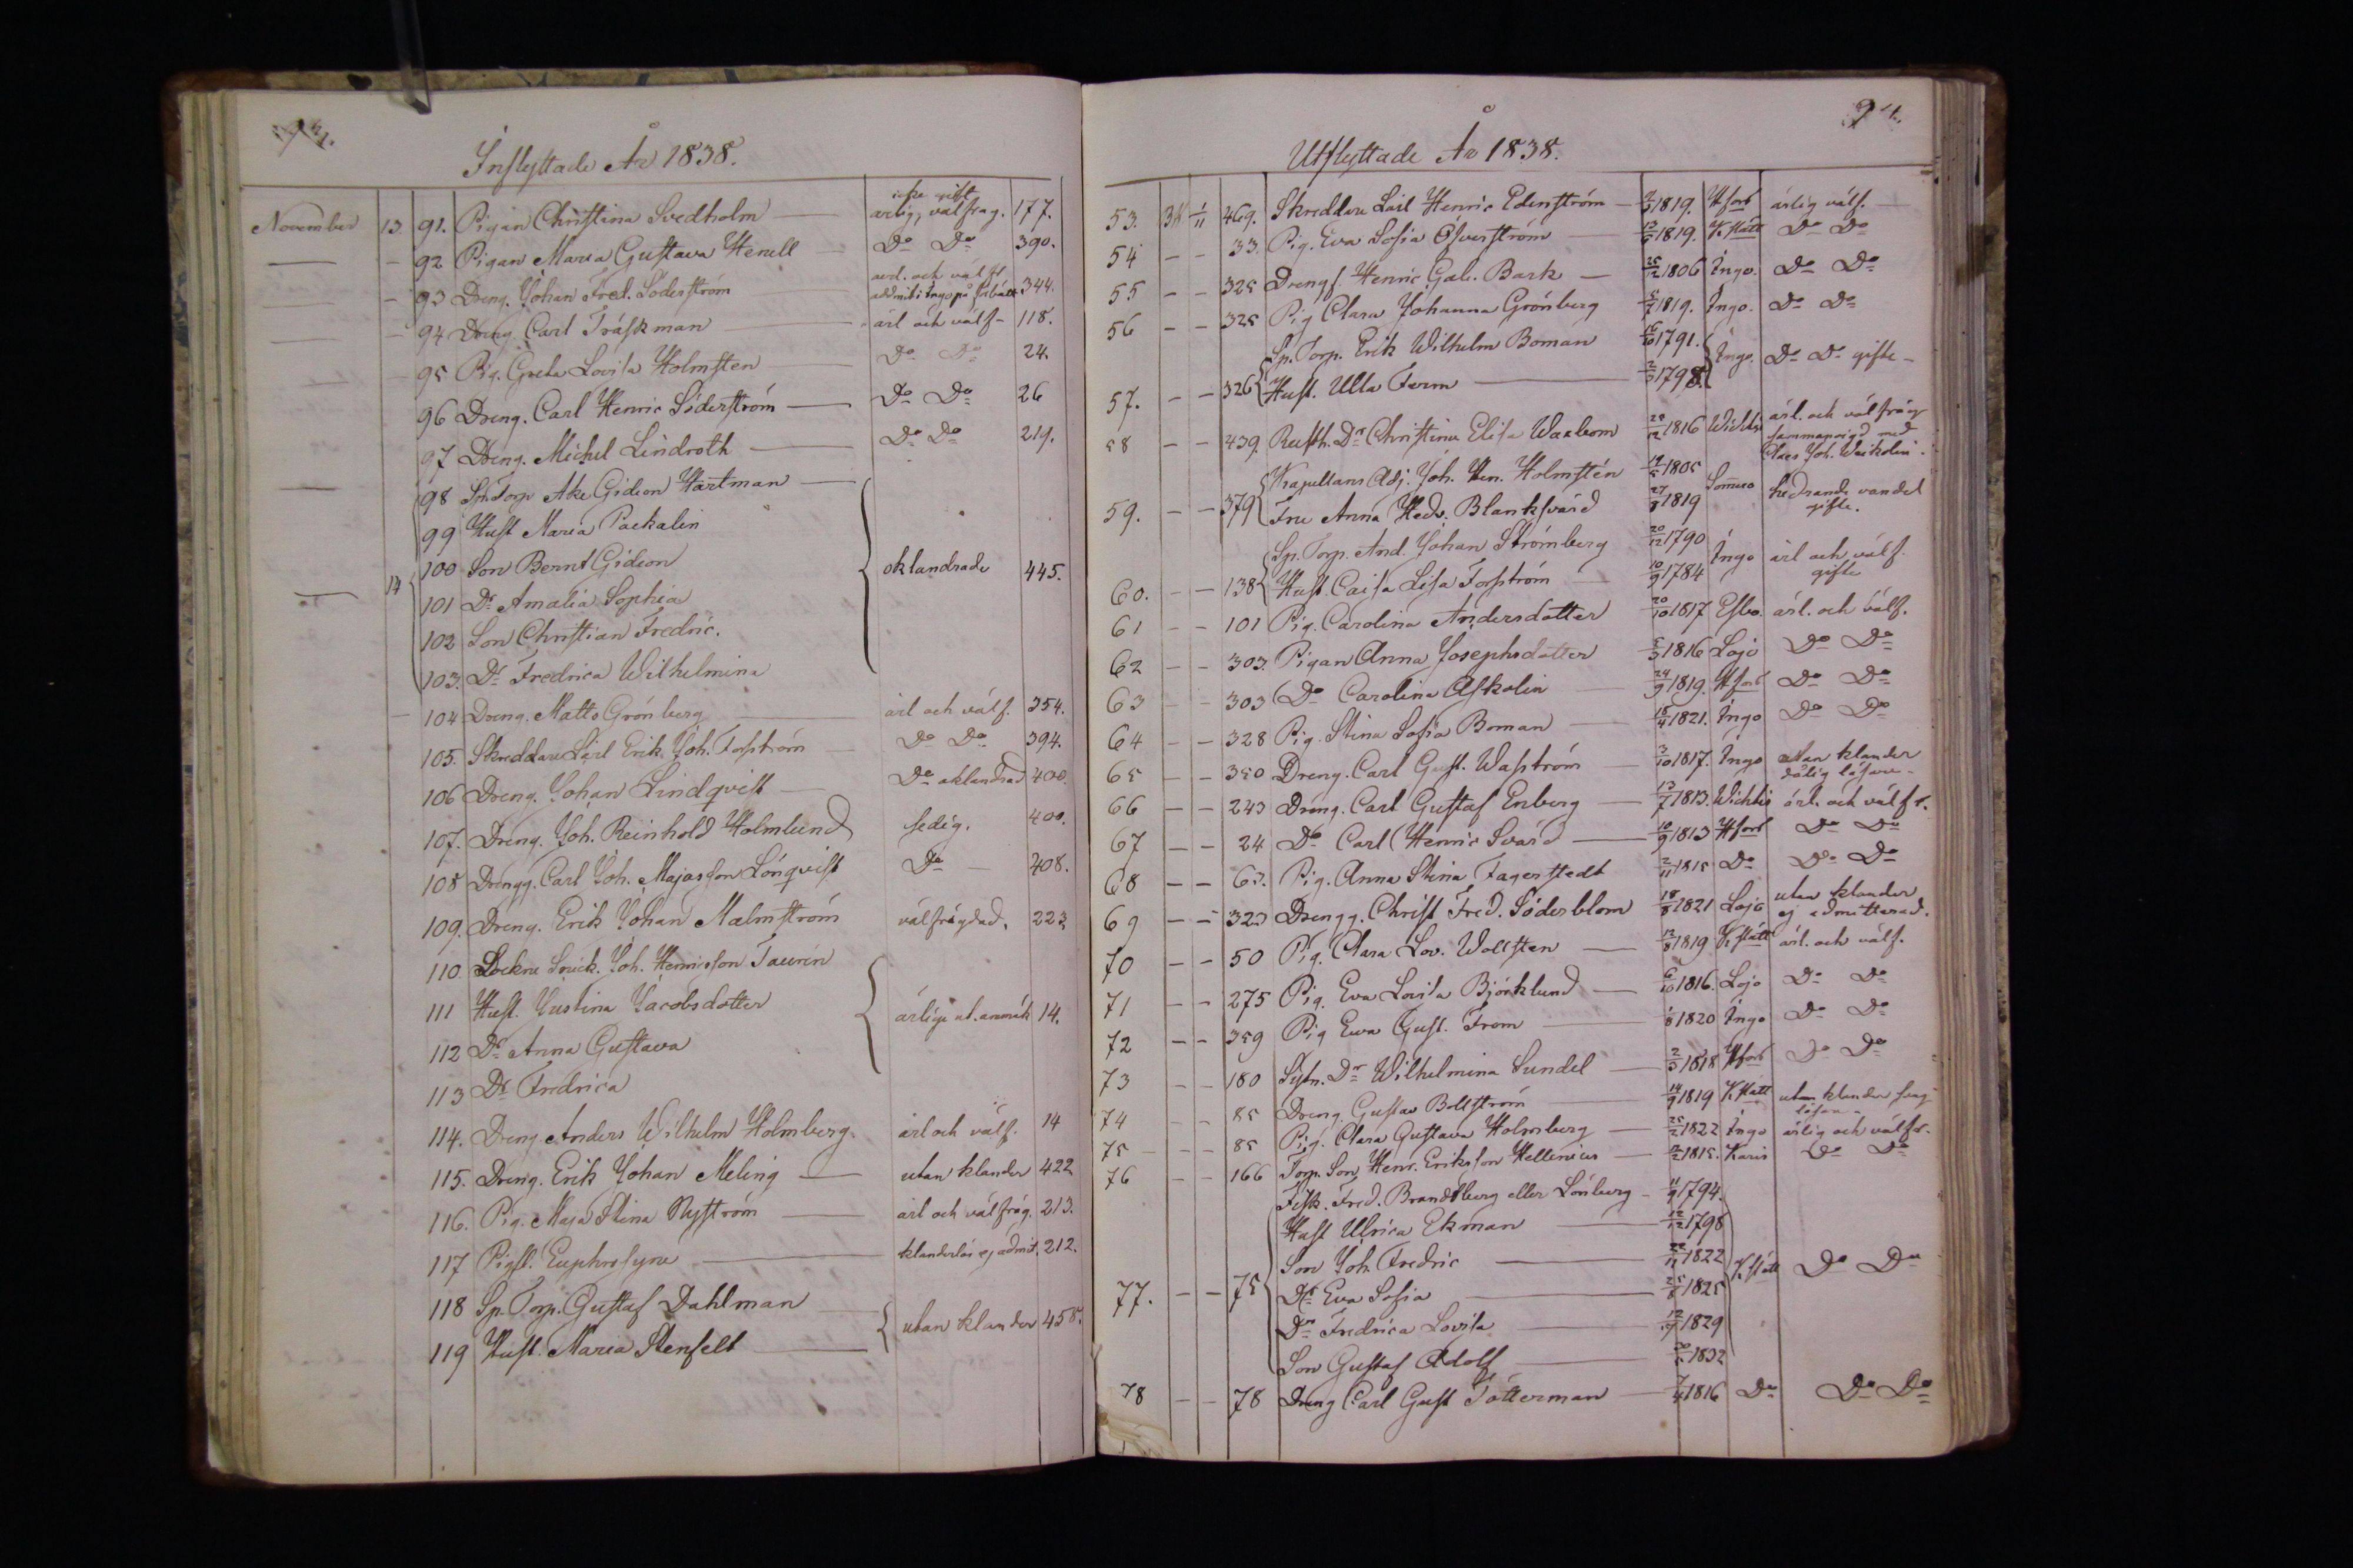 Inflyttade År 1838.
icke gift
November 13 91. Pigan Christina Svedholm ärlig, välfräg. 177.
— — 92 Pigan Maria Gustava Henell Do Do 390.
— — 93 Dreng. Johan Fred. Söderström 344.
— — 94 Dreng Carl Träskman ärl och välf- 118.
— 95 Pig. Greta Lovisa Holmsten Do Do 24.
— 96 Dreng. Carl Henric Söderström Do Do 26
— 97 Dreng. Michel Lindroth Do Do 219.
— 98 Sp. Torp Ake Gideon Hartman
99 Hust Maria Packalin
100 Son Bernt Gideon oklandrade 445.
— 14 101 Dr Amalia Sophia
102 Son Christian Fredric.
103. Dr Fredrica Wilhelmina
— 104 Dreng. Matts Grönberg ärl och välf. 354.
105. Skreddare Lärl Erik Joh. Forström Do Do 394.
106 Dreng. Johan Lindqvist Do oklandrad 400
107. Dreng. Joh. Reinhold Holmlund sedig. 400.
108 Drengg. Carl Joh. Majasson Lönqvist Do 408.
109. Dreng. Erik Johan Malmström välfrägdad. 223
110 Sockne Snick. Joh. Henricsson Taurin
111 Hust. Justina Jacobsdotter ärlige 14.
112 Dr Anna Gustava
113 Dr Fredrica
114. Dreng Anders Wilhelm Holmberg ärl och välf. 14
115. Dreng. Erik Johan Meling utan klander 422
116. Pig. Maja Stina Nyström ärl och välfräg. 213.
117 Pigfl. Euphrosyne klanderlös ej admit. 212.
118 Sp. Torp. Gustaf Dahlman
119 Hust. Maria Stenfelt utan klander 458.
94.
Utflyttade År 1838.
53. 1/11 469. Skreddare Lärl Henric Edenström 1819. Hfors ärlig välf.
54 — — 33. Pig. Eva Sofia Öfverström 1819. Kslätt Do Do
55 — — 325 Drengf. Henric Gab. Bark 25/12 1806 Ingo. Do Do
56 — — 325 Pig Clara Johanna Grönberg 1819. Ingo. Do Do
Sp. Torp. Erik Wilhelm Boman 1791.
57. — — 326 Hust. Ulla Ferm 1798. Ingo. Do Do gifte
58 — — 439. Rusth. Dr Christina Elisa Waxbom 1816 Wichtis ärl. och välfräg
sammanvigd med
Claes Joh.
Kapellans Adj. Joh. Hen. Holmstén 19/5 1805
59. — — 379 Fru Anna Hedv. Blanksvärd 27/8 1819 Sommero hedrande vandel
gifte.
Sp. Torp. And. Johan Strömberg 20/12 1790
60. — — 138 Hust. Caisa Lisa Forström 10/9 1784 Ingo ärl och välf.
gifte
61 — — 101 Pig. Carolina Andersdotter 20/10 1817 Esbo. ärl. och välf.
62 — — 303. Pigan Anna Josephsdotter 5/3 1816 Lojo Do Do
63 — — 303 Do Carolina Askolin 24/9 1819. Hfors Do Do
64 — — 328 Pig. Stina Sofia Boman 18/4 1821. Ingo Do Do
65 — — 350 Dreng. Carl Gust. Waström 3/10 1817. Ingo utan klander
dålig läsare
66 — — 243 Dreng. Carl Gustaf Enberg 13/7 1813. Wichtis ärl. och välfr.
67 — — 24 Do Carl Henric Svärd 10/9 1813 Hfors Do Do
68 — — 63. Pig. Anna Stina Fagerstedt 2/11 1815 Do Do Do
69 — — 323 Drengg. Christ Fred. Söderblom 18/8 1821 Lojo utan klander
ej admitterad.
70 — — 50 Pig. Clara Lov. Wollsten 13/8 1819 Kslätt ärl. och välf.
71 — — 275 Pig. Eva Lovisa Björklund 6/10 1816. Lojo Do Do
72 — — 359 Pig Eva Gust. From 1820 Ingo Do Do
73 — — 180 Dr Wilhelmina Sundel 2/3 1818 Hfors Do Do
74 — — 85 Dreng Gustav Bollström 14/9 1819 Kslätt utan klander svag
läsare
75 — — 85 Pig. Clara Gustava Holmberg 25/2 1822 Ingo ärlig och välfr.
76 — — 166 Torp. Son Henr. Eriksson Hellenius 1815. Karis Do Do
Fisk. Fred. Brandtberg eller Lönberg 11/9 1794.
Hust Ulrica Ekman 12/12 1798
Son Joh. Fredric 1822
77. — — 75 Dr Eva Sofia 25/8 1825 Kslätt Do Do
Dr Fredrica Lovisa 1829
Son Gustaf Adolf 1832
78 — — 78 Dreng Carl Gust Tötterman 7/4 1816 Do Do Do